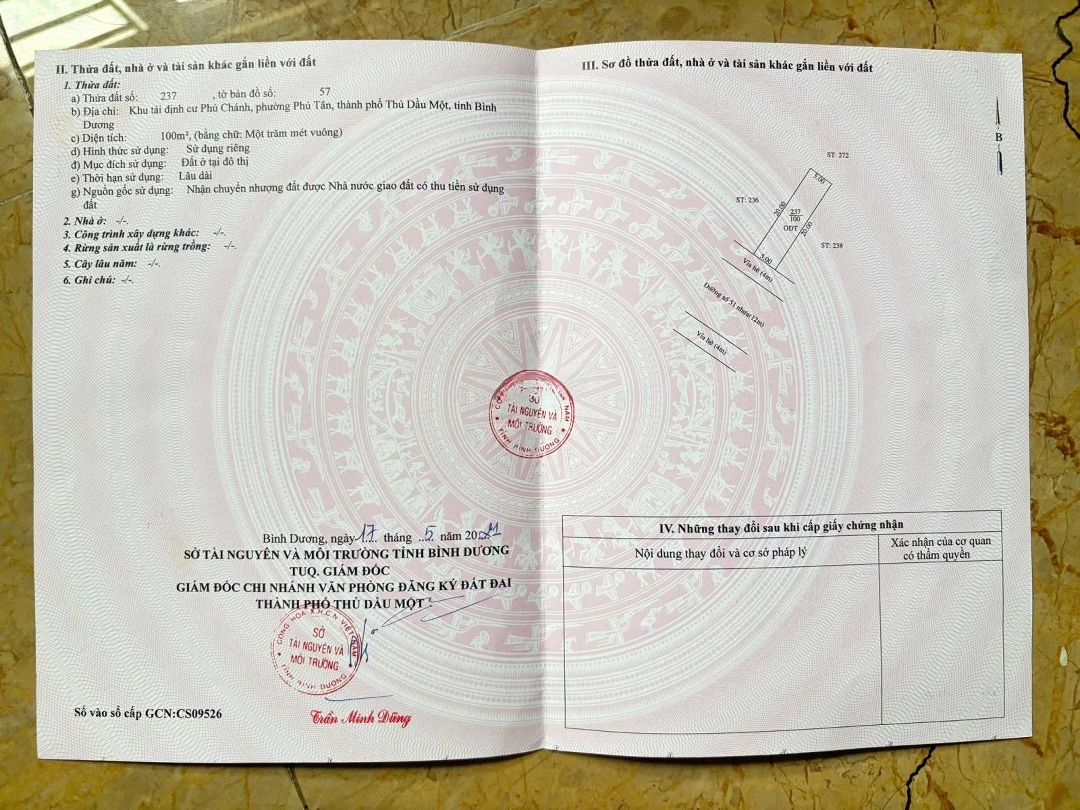 II. Thửa đất, nhà ở và tài sản khác gắn liền với đất
1. Thửa đất:
a) Thửa đất số: 237 , tờ bản đồ số: 57
b) Địa chỉ: Khu tái định cư Phú Chánh, phường Phú Tân, thành phố Thủ Dầu Một, tỉnh Bình
Dương
c) Diện tích: 100m², (bằng chữ: Một trăm mét vuông)
d) Hình thức sử dụng: Sử dụng riêng
đ) Mục đích sử dụng: Đất ở tại đô thị
e) Thời hạn sử dụng: Lâu dài
g) Nguồn gốc sử dụng: Nhận chuyển nhượng đất được Nhà nước giao đất có thu tiền sử dụng
đất
2. Nhà ở: -/-.
3. Công trình xây dựng khác: -/-.
4. Rừng sản xuất là rừng trồng: -/-.
5. Cây lâu năm: -/-.
6. Ghi chú: -/-.
Bình Dương, ngày 17 tháng 5 năm 2021
SỞ TÀI NGUYÊN VÀ MÔI TRƯỜNG TỈNH BÌNH DƯƠNG
TUQ. GIÁM ĐỐC
GIÁM ĐỐC CHI NHÁNH VĂN PHÒNG ĐĂNG KÝ ĐẤT ĐAI
THÀNH PHỐ THỦ DẦU MỘT
CỘNG HÒA X.H.C.N VIỆT NAM
SỞ
TÀI NGUYÊN VÀ
MÔI TRƯỜNG
TỈNH BÌNH DƯƠNG
Trần Minh Dũng
Số vào sổ cấp GCN:CS09526
SỞ
TÀI NGUYÊN VÀ
MÔI TRƯỜNG
TỈNH BÌNH DƯƠNG
III. Sơ đồ thửa đất, nhà ở và tài sản khác gắn liền với đất
B
ST: 272
5.00
ST: 236
20.00
237
100
ODT
20.00
ST: 238
5.00
Vỉa hè (4m)
Đường số 51 nhựa (12m)
Vỉa hè (4m)
IV. Những thay đổi sau khi cấp giấy chứng nhận
Nội dung thay đổi và cơ sở pháp lý
Xác nhận của cơ quan
có thẩm quyền